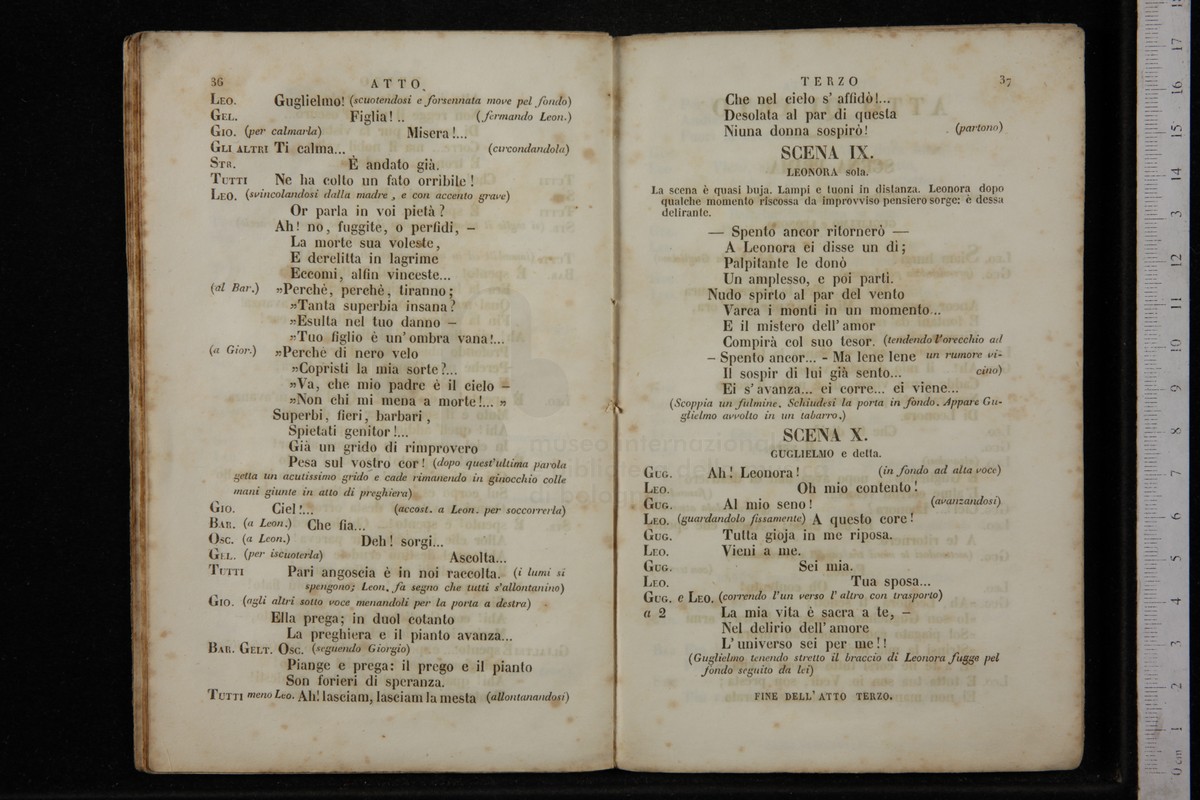 36 ATTO
LEO. Guglielmo! (scuotendosi e forsennata move pel fondo)
GEL. Figlia! .. (fermando Leon.)
GIO. (per calmarla) Misera!...
GLI ALTRI Ti calma... (circondandola)
STR. È andato già.
TUTTI Ne ha colto un fato orribile!
LEO. (svincolandosi dalla madre, e con accento grave)
Or parla in voi pietà?
Ah! no, fuggite, o perfidi, –
La morte sua voleste,
E derelitta in lagrime
Eccomi, alfin vinceste...
(al Bar.) »Perchè, perchè, tiranno;
»Tanta superbia insana?
»Esulta nel tuo danno –
»Tuo figlio è un' ombra vana!...
(a Gior.) »Perchè di nero velo
»Copristi la mia sorte?...
»Va, che mio padre è il cielo –
»Non chi mi mena a morte!... »
Superbi, fieri, barbari,
Spietati genitor!...
Già un grido di rimprovero
Pesa sul vostro cor! (dopo quest'ultima parola
getta un acutissimo grido e cade rimanendo in ginocchio colle
mani giunte in atto di preghiera)
GIO. Ciel!... (accost. a Leon. per soccorrerla)
BAR. (a Leon.) Che fia...
OSC. (a Leon.) Deh! sorgi...
GEL. (per iscuoterla) Ascolta...
TUTTI Pari angoscia è in noi raccolta. (i lumi si
spengono; Leon. fa segno che tutti s'allontanino)
GIO. (agli altri sotto voce menandoli per la porta a destra)
Ella prega; in duol cotanto
La preghiera e il pianto avanza...
BAR. GELT. OSC. (seguendo Giorgio)
Piange e prega: il prego e il pianto
Son forieri di speranza.
TUTTI meno LEO. Ah! lasciam, lasciam la mesta (allontanandosi)
TERZO 37
Che nel cielo s' affidò!...
Desolata al par di questa
Niuna donna sospirò! (partono)
SCENA IX.
LEONORA sola.
La scena è quasi buja. Lampi e tuoni in distanza. Leonora dopo
qualche momento riscossa da improvviso pensiero sorge: è dessa
delirante.
— Spento ancor ritornerò —
A Leonora ei disse un dì;
Palpitante le donò
Un amplesso, e poi partì.
Nudo spirto al par del vento
Varca i monti in un momento...
E il mistero dell' amor
Compirà col suo tesor. (tendendo l'orecchio ad
– Spento ancor... - Ma lene lene un rumore vi-
Il sospir di lui già sento... cino)
Ei s' avanza... ei corre... ei viene...
(Scoppia un fulmine. Schiudesi la porta in fondo. Appare Gu-
glielmo avvolto in un tabarro.)
SCENA X.
GUGLIELMO e detta.
GUG. Ah! Leonora! (in fondo ad alta voce)
LEO. Oh mio contento!
GUG. Al mio seno! (avanzandosi)
LEO. (guardandolo fissamente) A questo core!
GUG. Tutta gioja in me riposa.
LEO. Vieni a me.
GUG. Sei mia.
LEO. Tua sposa...
GUG. e LEO. (correndo l'un verso l' altro con trasporto)
a 2 La mia vita è sacra a te, –
Nel delirio dell' amore
L' universo sei per me!!
(Guglielmo tenendo stretto il braccio di Leonora fugge pel
fondo seguito da lei)
FINE DELL' ATTO TERZO.